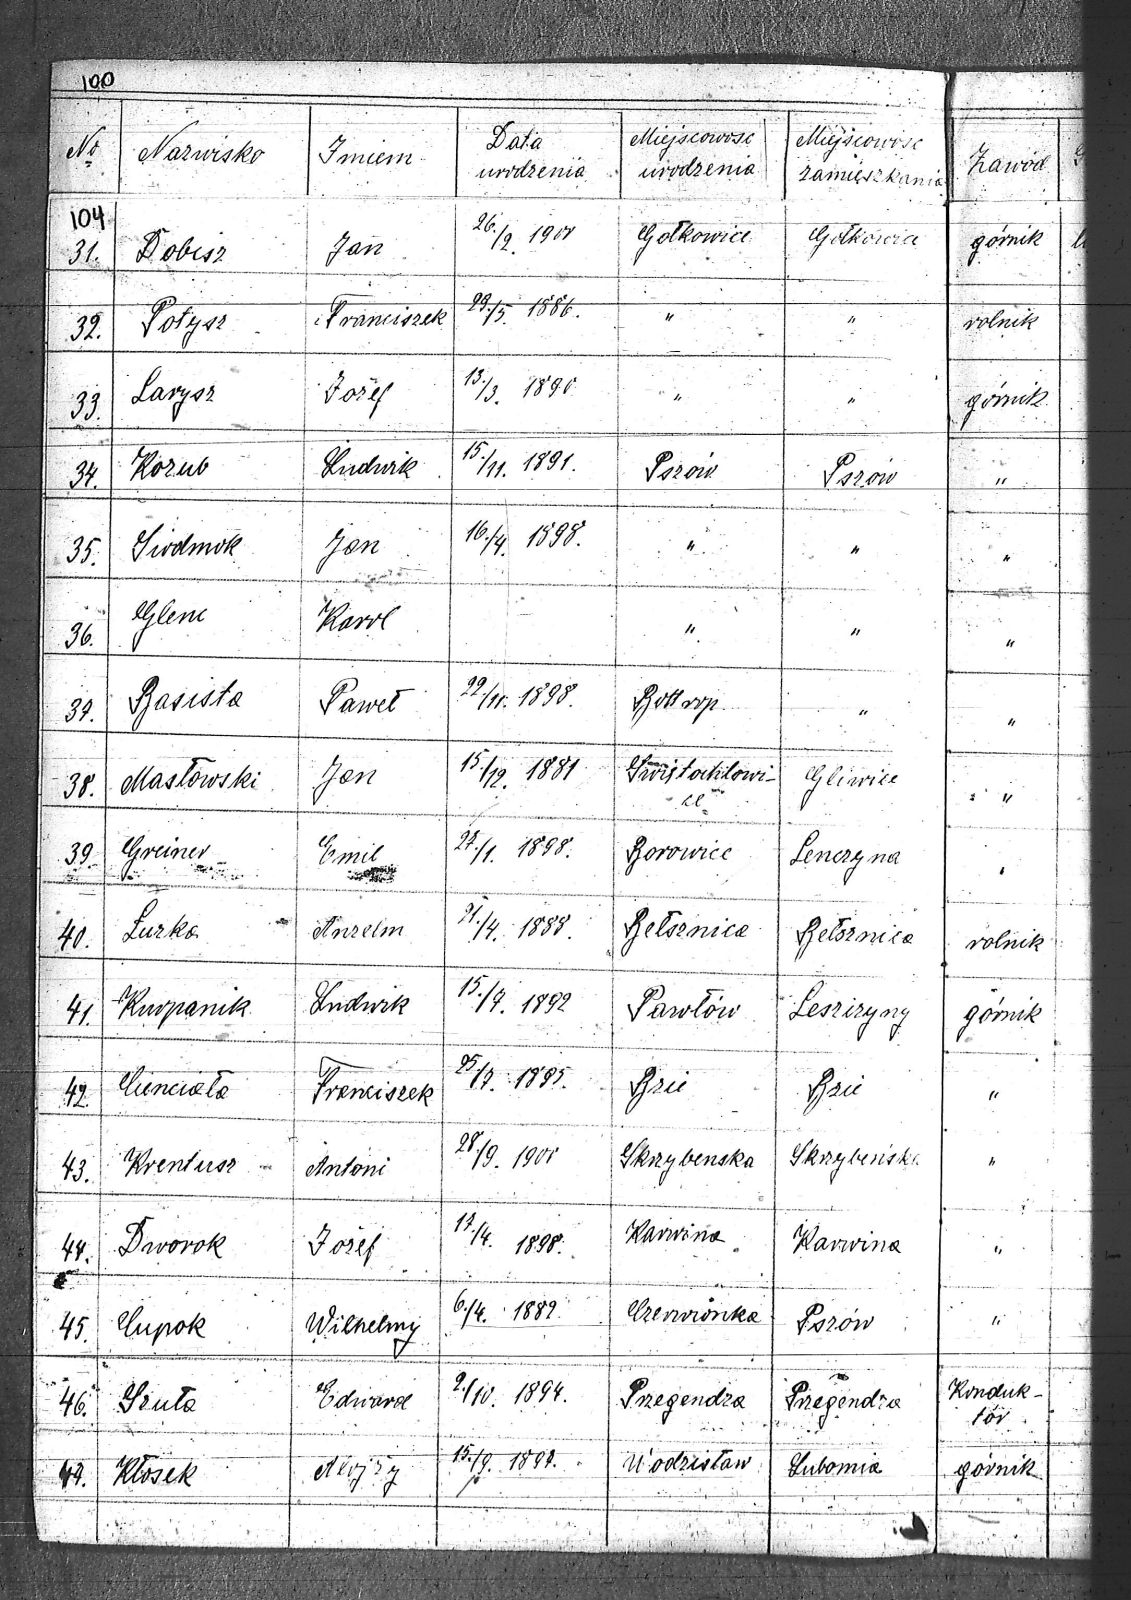 100
No Nazwisko Imiem Data urodzenia Miejscowosc urodzenia Miejscowosc zamieszkania Zawód
104
31. Dobisz Jan 26./2. 1901 Gołkowice Gołkowice górnik
32. Potysz Franciszek 29./5. 1886. " " rolnik
33. Larysz Jozef 13./3. 1890 " " górnik
34. Kozub Ludwik 15./11. 1891. Pszów Pszów "
35. Siodmok Jan 16./4. 1898. " " "
36. Glenc Karol " " "
37. Basista Paweł 22./11. 1898. Bottrop " "
38. Masłowski Jan 15./12. 1881 Swistochłowi-ce Gliwice "
39. Greiner Emil 27./1. 1898. Borowiec Lenczyna "
40. Lurka Anzelm 21./4. 1888. Bełsznica Bełsznica rolnik
41. Kurpanik Ludwik 15./7. 1892 Pawłów Leszczyny górnik
42. Cienciała Franciszek 25./7. 1895. Bzie Bzie "
43. Krentusz Antoni 28./9. 1901 Skrzybenska Skrzybeńska "
44. Dworok Jozef 17./4. 1898. Karwina Karwina "
45. Cupok Wilhelmy 6./4. 1882. Czerwionka Pszów "
46. Szuła Edward 2./10. 1894. Przegendza Przegendza Konduk-tor
47. Kłosek Alojzy 15./9. 1892. Wodzisław Lubomia górnik